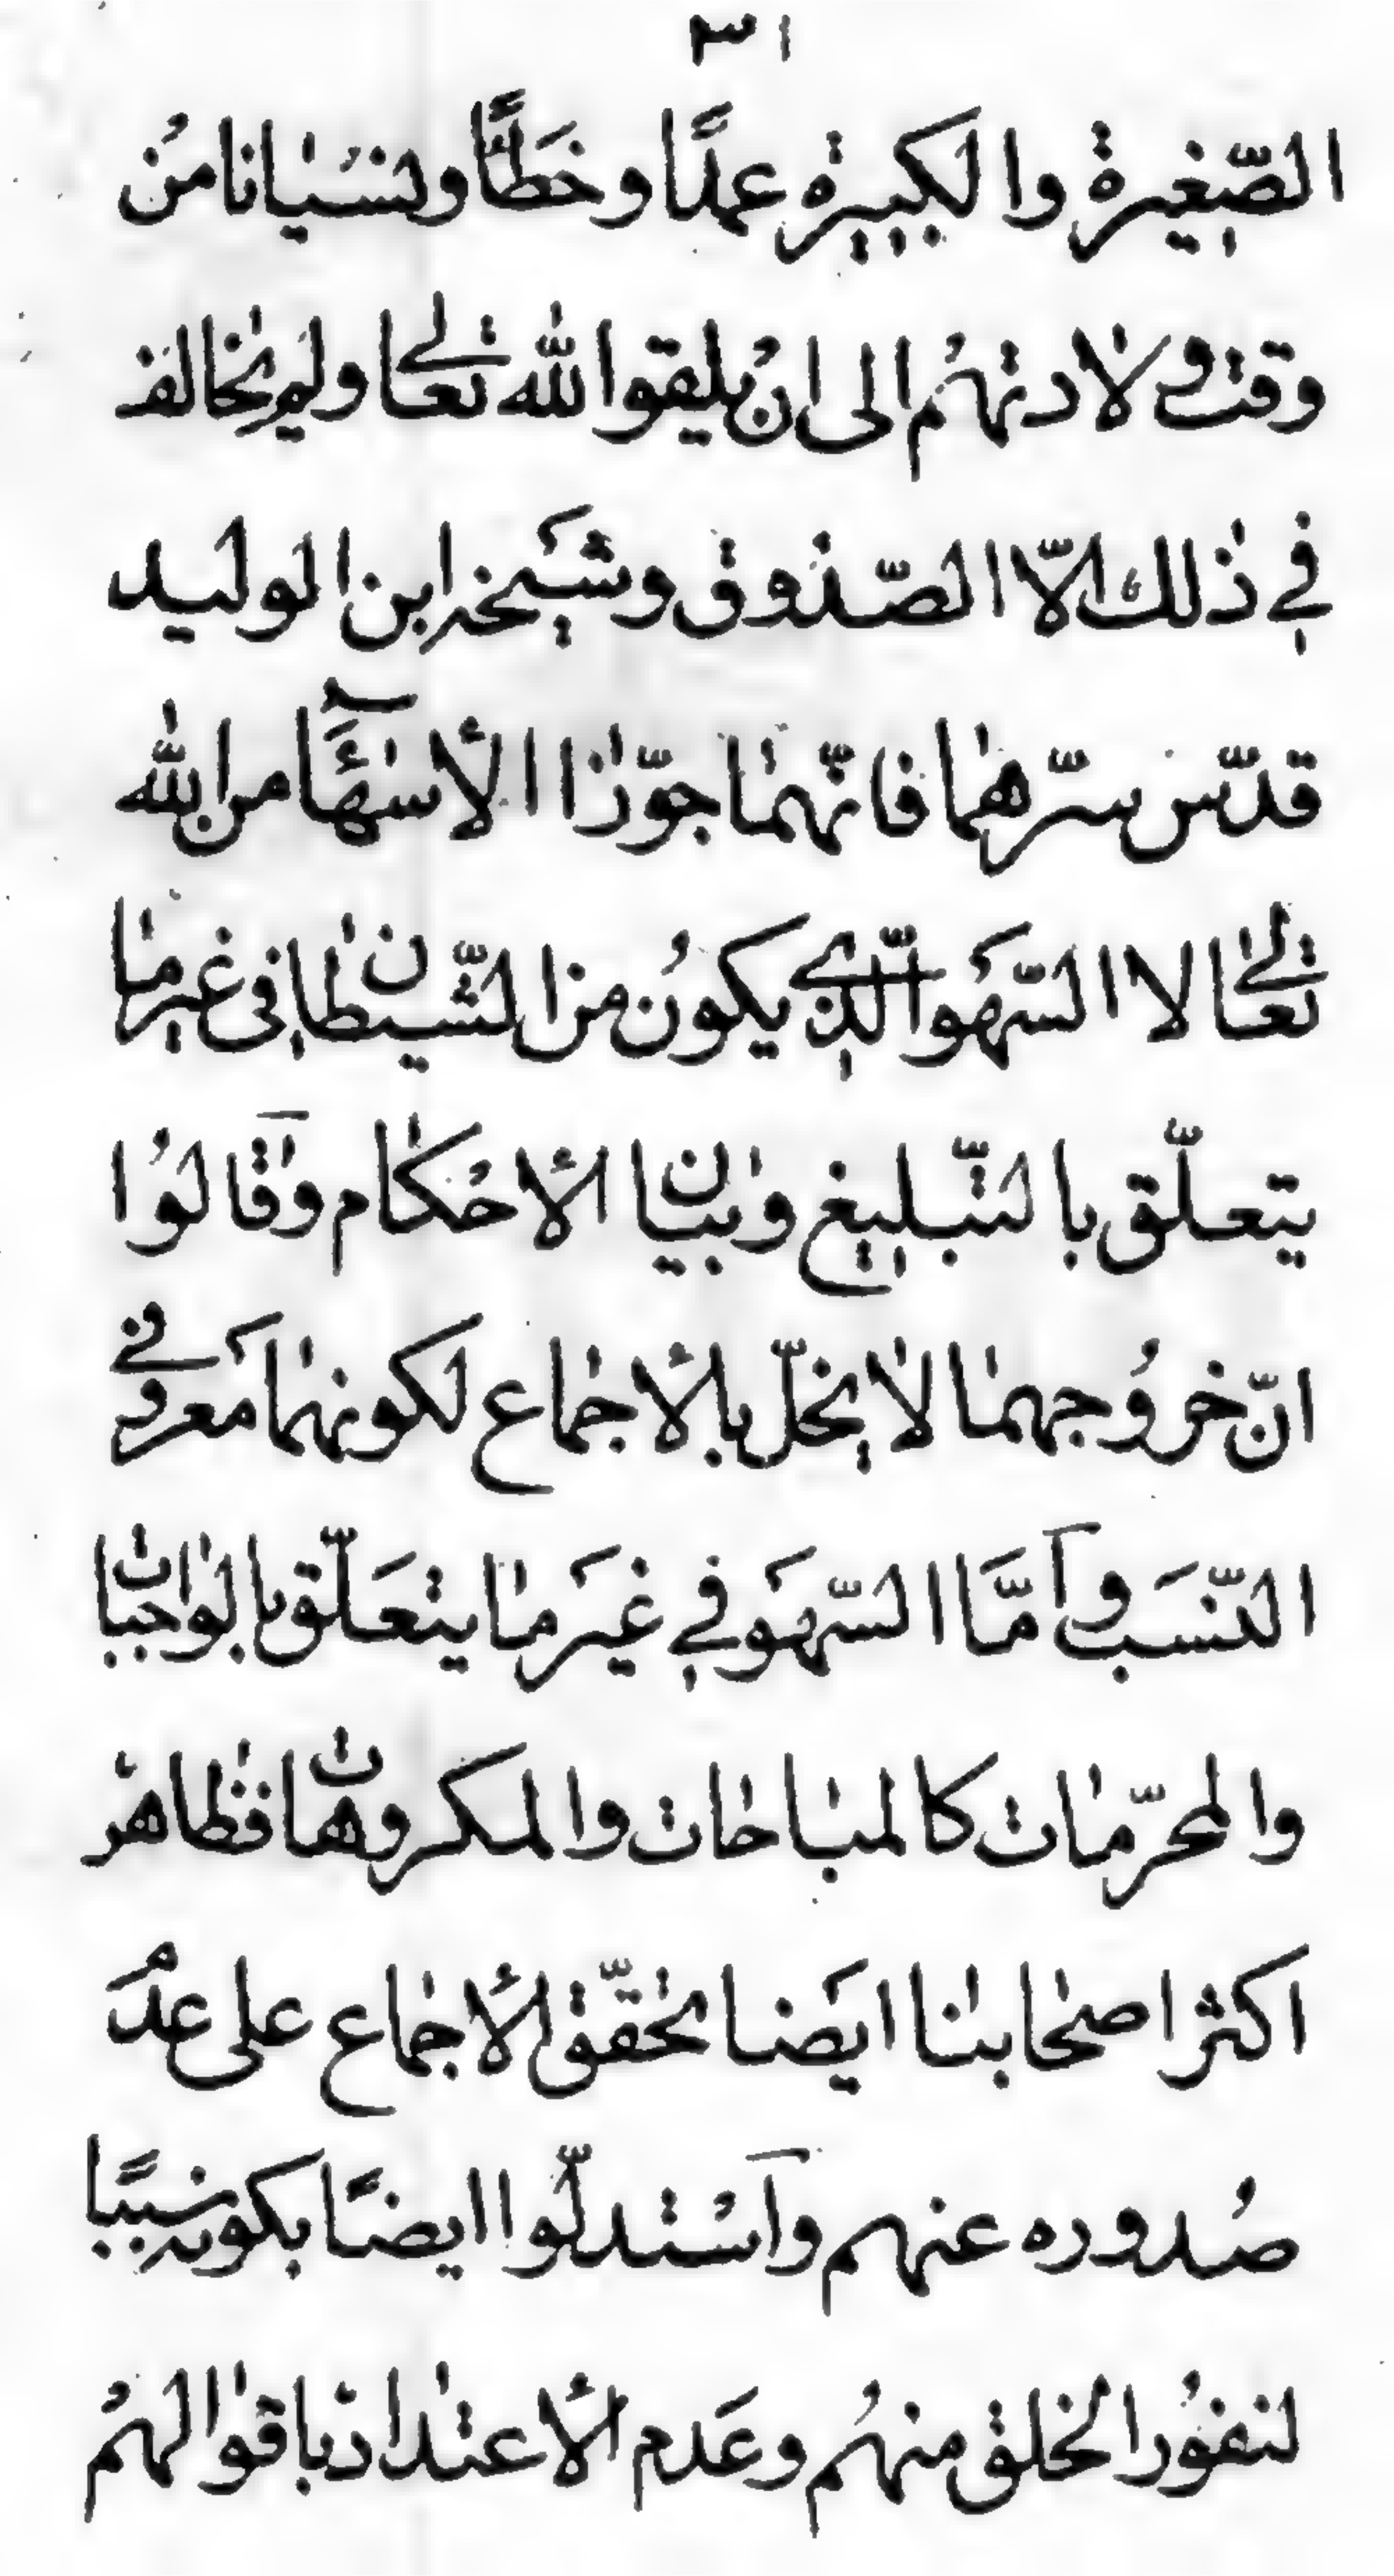 ٣١
الصّغيرة والكبيرة عمدًا وخَطَأً ونسْيانا منْ
وقت ولادتهمْ الى انْ يلقوا الله تعالى ولم يخالف
في ذلك الّا الصّدُوق وشَيخه ابن الوليد
قدّس سرّهما فانّهما جوّزا الأسهَآءَ من الله
تعالى لا السّهَو الّذي يكوُن من الشّيطان في غير ما
يتعلّق بالتّبليغ وبيان الأحْكام وَقالوُا
انّ خروُجهما لا يخلّ بالأجماع لكونهما مَعروفي
النّسَب وَامَّا السّهَو في غيَر ما يتعَلّق بالواجبات
والمحرّمات كالمباحات والمكروهات فظاهرْ
اكثر اصحابنا ايَضا تحقّق الأجماع على عدَمُ
صُدوره عنهم وَاسْتدلّوا ايضًا بكونه سببًا
لنفوُر الخلق منهمُ وعَدم الأعتداد باقوالهمُ